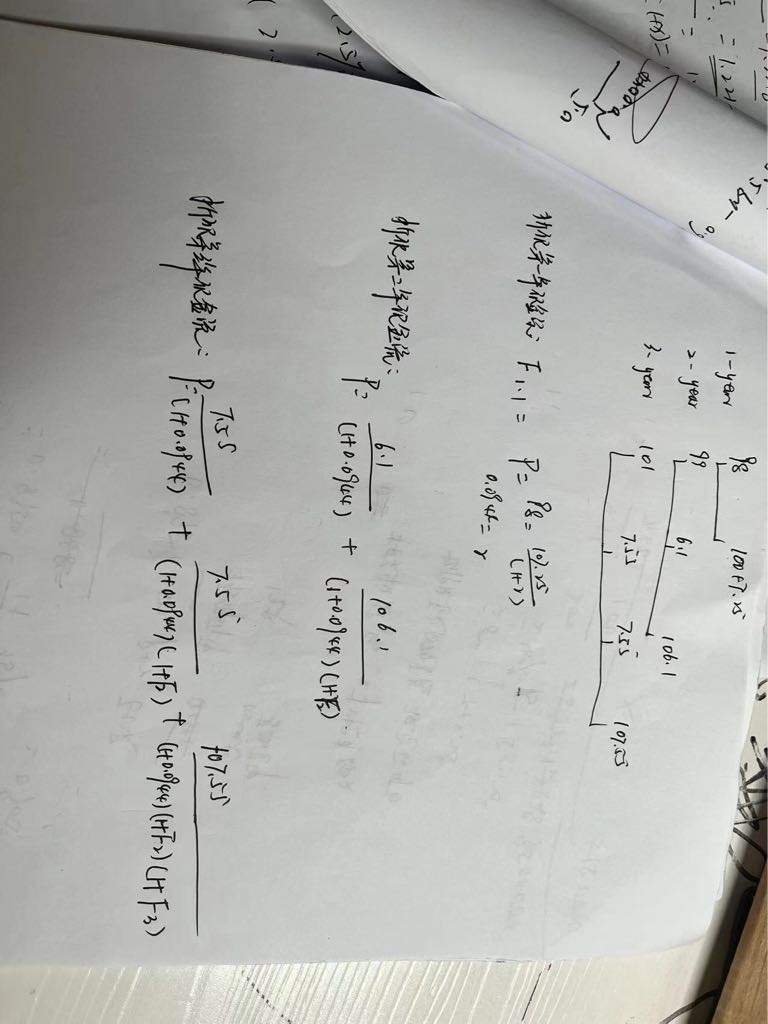 1-year 98 100+7.25
2-year 99 6.1 106.1
3-year 101 7.55 7.55 107.55
折现第一年现金流: F1.1 = P = 98 = 107.25/(1+r)
0.0944 = r
折现第二年现金流: P = 6.1/(1+0.0944) + 106.1/(1+0.0944)(1+F2)
折现第三年现金流: P = 7.55/(1+0.0944) + 7.55/(1+0.0944)(1+F2) + 107.55/(1+0.0944)(1+F2)(1+F3)